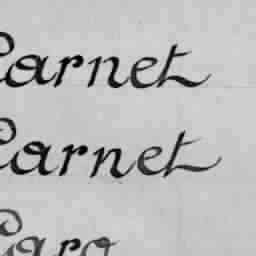 Carnet
Carnet
Caro